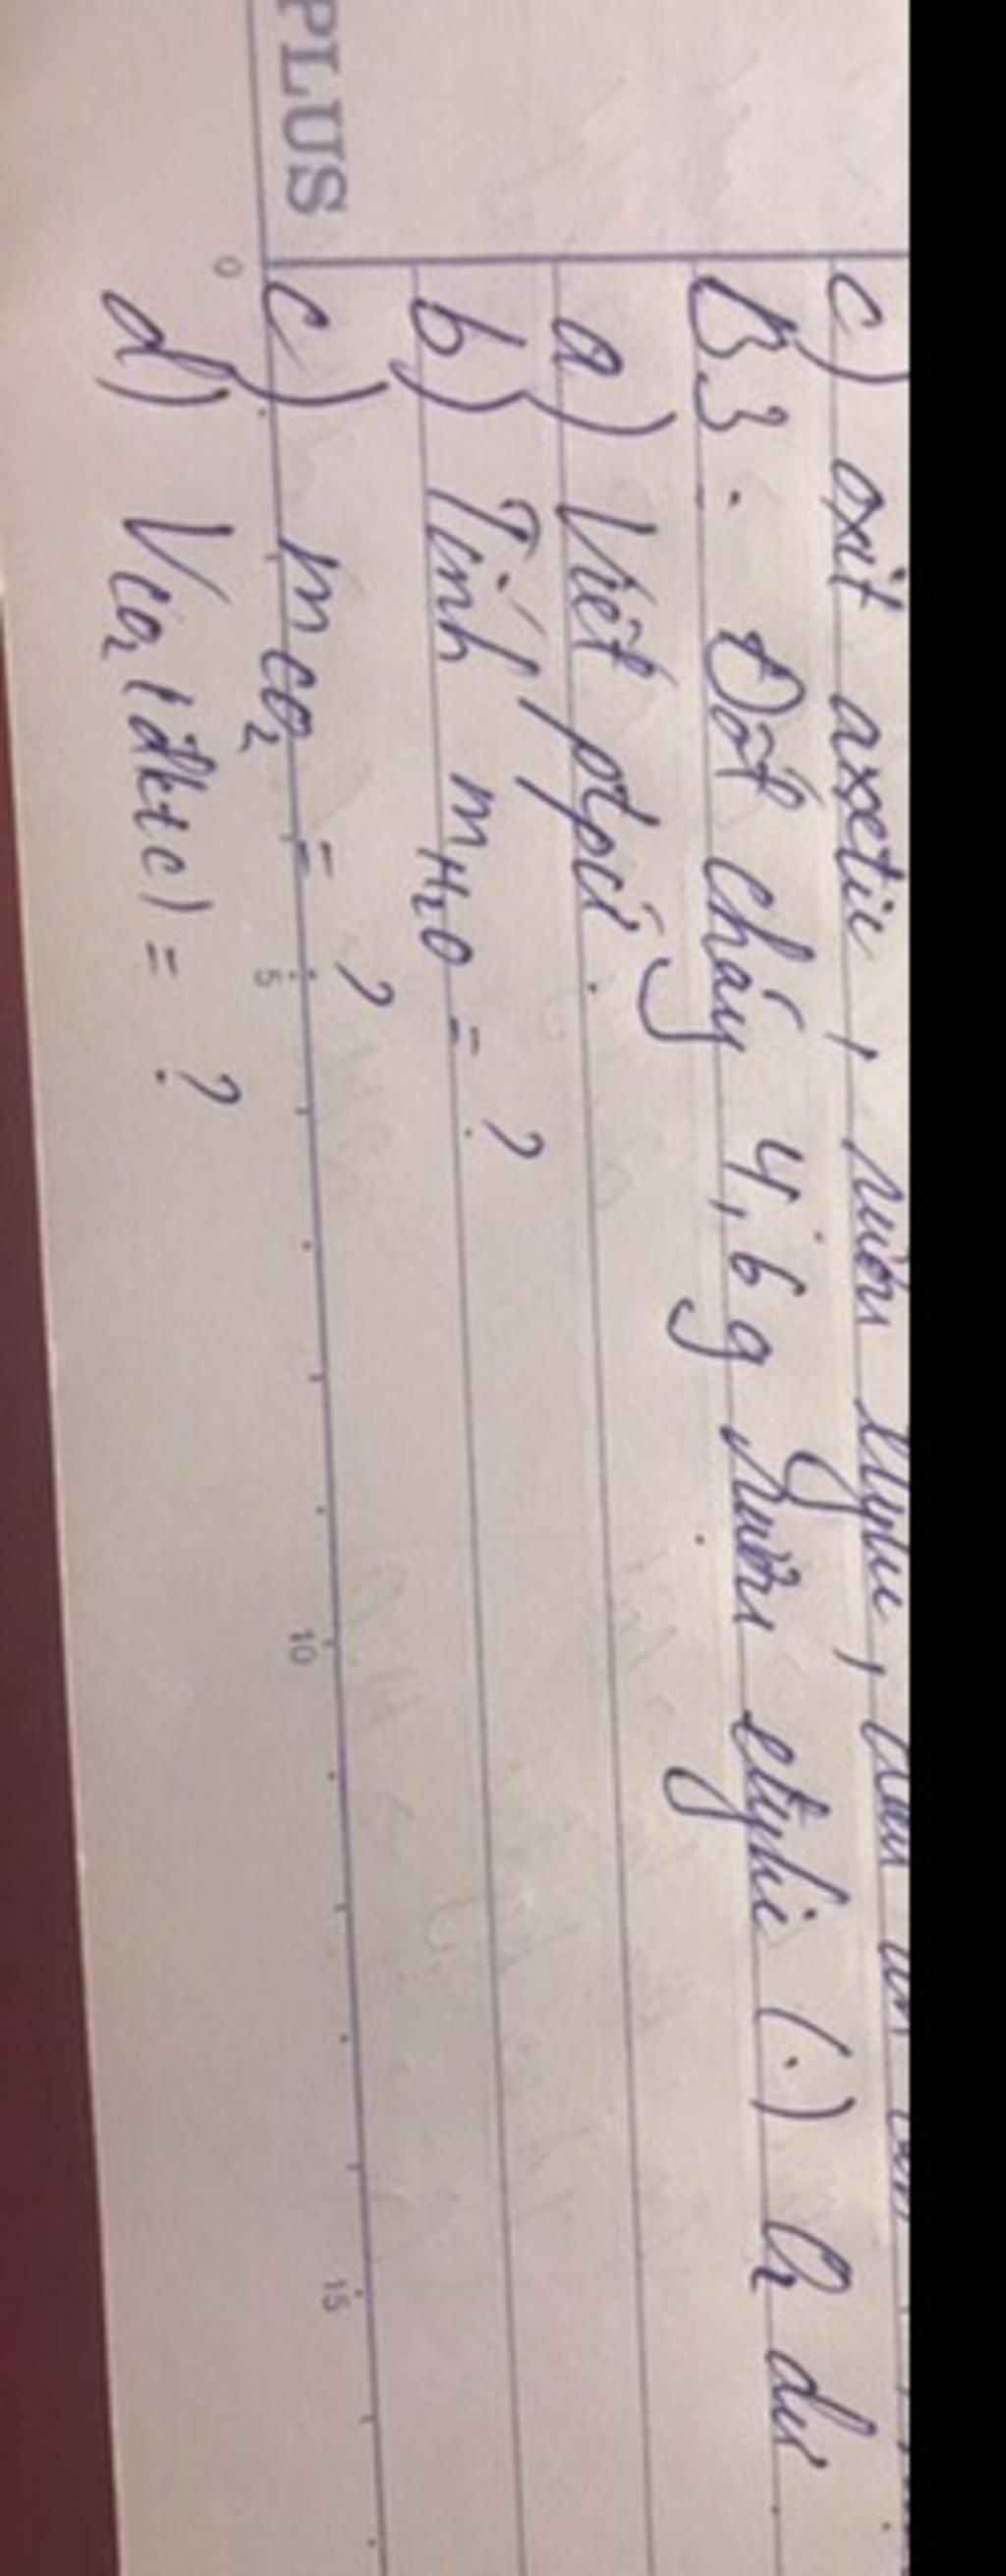 c) axit axetic, rượu etylic,
B3. Đốt cháy 4,6g rượu etylic (.) O2 dư
a) Viết ptpứ.
b) Tính mH2O = ?
c) mCO2 = ?
d) VCO2 (đktc) = ?
PLUS
0 5 10 15